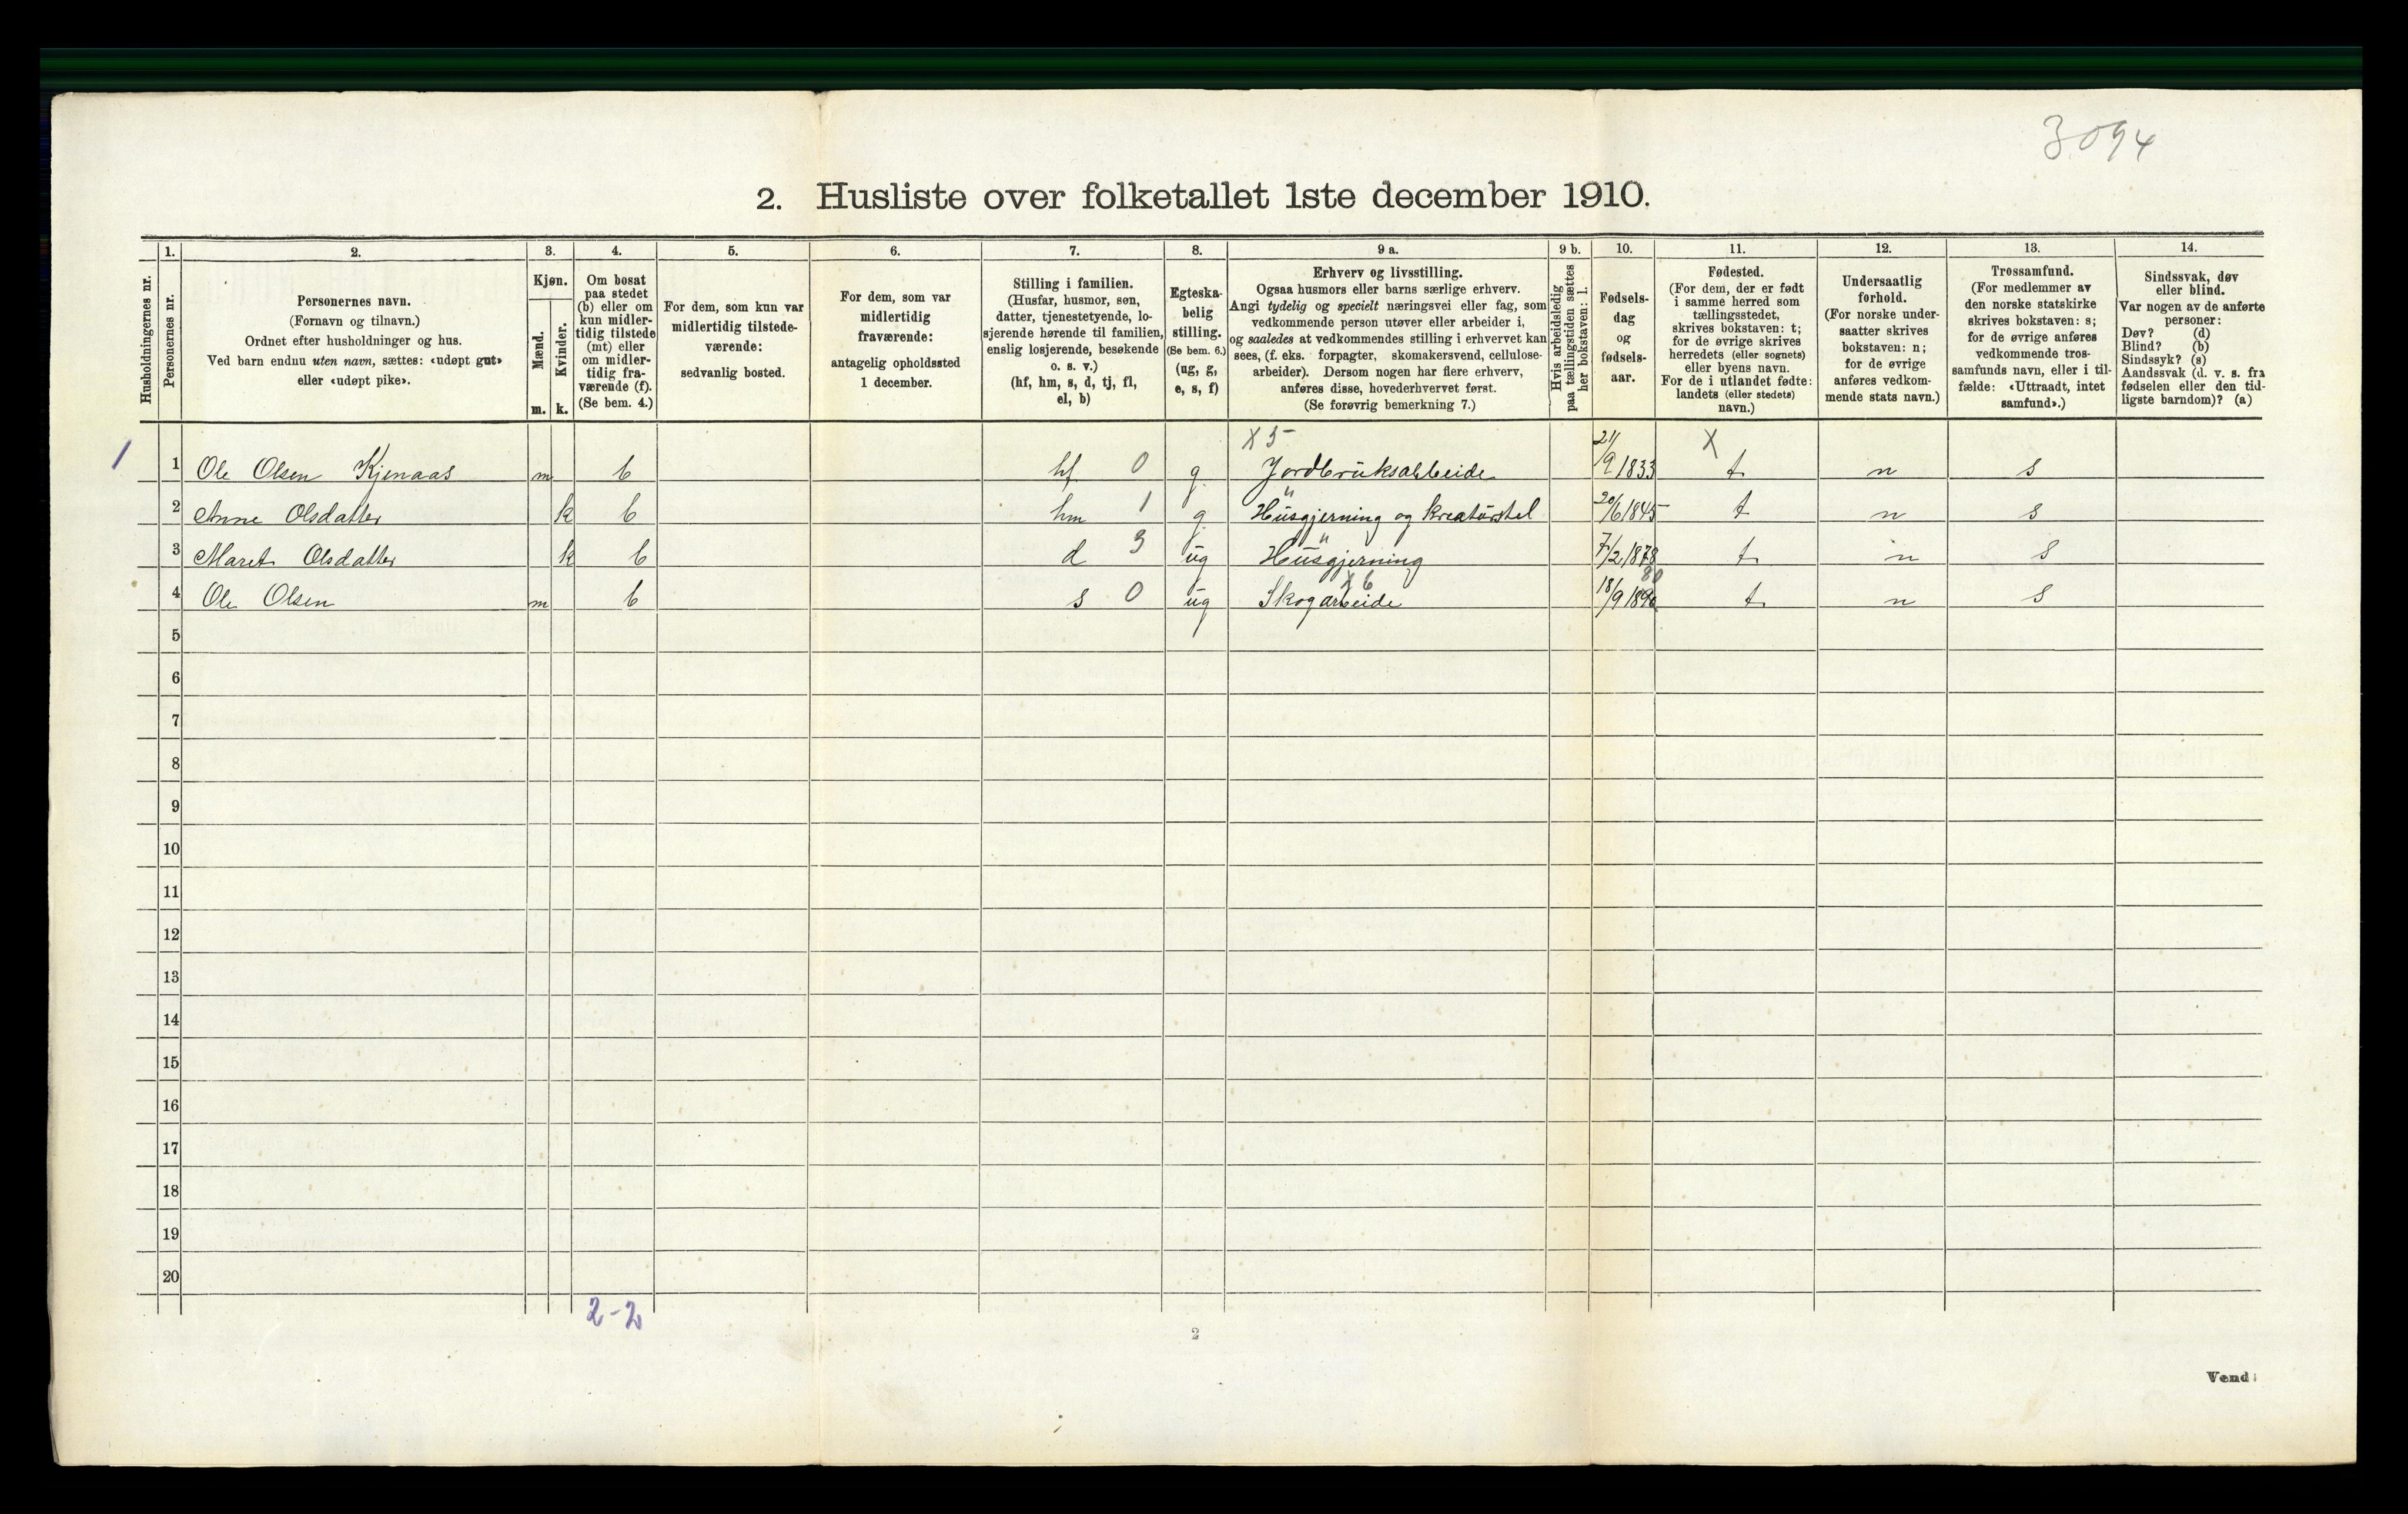 3094
2. Husliste over folketallet 1ste december 1910.
Husholdningernes nr.
1.
Personernes nr.
2.
Personernes navn.
(Fornavn og tilnavn.)
Ordnet efter husholdninger og hus.
Ved barn endnu uten navn, sættes: «udøpt gut»
eller «udøpt pike».
3.
Kjøn.
Mænd.
m.
Kvinder.
k.
4.
Om bosat
paa stedet
(b) eller om
kun midler-
tidig tilstede
(mt) eller
om midler-
tidig fra-
værende (f).
(Se bem. 4.)
5.
For dem, som kun var
midlertidig tilstede-
værende:
sedvanlig bosted.
6.
For dem, som var
midlertidig
fraværende:
antagelig opholdssted
1 december.
7.
Stilling i familien.
(Husfar, husmor, søn,
datter, tjenestetyende, lo-
sjerende hørende til familien,
enslig losjerende, besøkende
o. s. v.)
(hf, hm, s, d, tj, fl,
el, b)
8.
Egteska-
belig
stilling.
(Se bem. 6.)
(ug, g,
e, s, f)
9 a.
Erhverv og livsstilling.
Ogsaa husmors eller barns særlige erhverv.
Angi tydelig og specielt næringsvei eller fag, som
vedkommende person utøver eller arbeider i,
og saaledes at vedkommendes stilling i erhvervet kan
sees, (f. eks. forpagter, skomakersvend, cellulose-
arbeider). Dersom nogen har flere erhverv,
anføres disse, hovederhvervet først.
(Se forøvrig bemerkning 7.)
9 b.
Hvis arbeidsledig
paa tællingstiden sættes
her bokstaven: l.
10.
Fødsels-
dag
og
fødsels-
aar.
11.
Fødested.
(For dem, der er født
i samme herred som
tællingsstedet,
skrives bokstaven: t;
for de øvrige skrives
herredets (eller sognets)
eller byens navn.
For de i utlandet fødte:
landets (eller stedets)
navn.)
12.
Undersaatlig
forhold.
(For norske under-
saatter skrives
bokstaven: n;
for de øvrige
anføres vedkom-
mende stats navn.)
13.
Trossamfund.
(For medlemmer av
den norske statskirke
skrives bokstaven: s;
for de øvrige anføres
vedkommende tros-
samfunds navn, eller i til-
fælde: «Uttraadt, intet
samfund».)
14.
Sindssvak, døv
eller blind.
Var nogen av de anførte
personer:
Døv? (d)
Blind? (b)
Sindssyk? (s)
Aandssvak (d. v. s. fra
fødselen eller den tid-
ligste barndom)? (a)
X 5 X
1 1 Ole Olsen Kjenaas m b hf 0 g Jordbruksarbeide 21/9 1833 t n s
2 Anne Olsdatter k b hm 1 g Husgjerning og kreaturstel 20/6 1845 t n s
3 Maret Olsdatter k b d 3 ug Husgjerning 7/2 1878 t n s
X 6 80
4 Ole Olsen m b s 0 ug Skogarbeide 18/9 1890 t n s
5
6
7
8
9
10
11
12
13
14
15
16
17
18
19
20
2-2
2
Vend